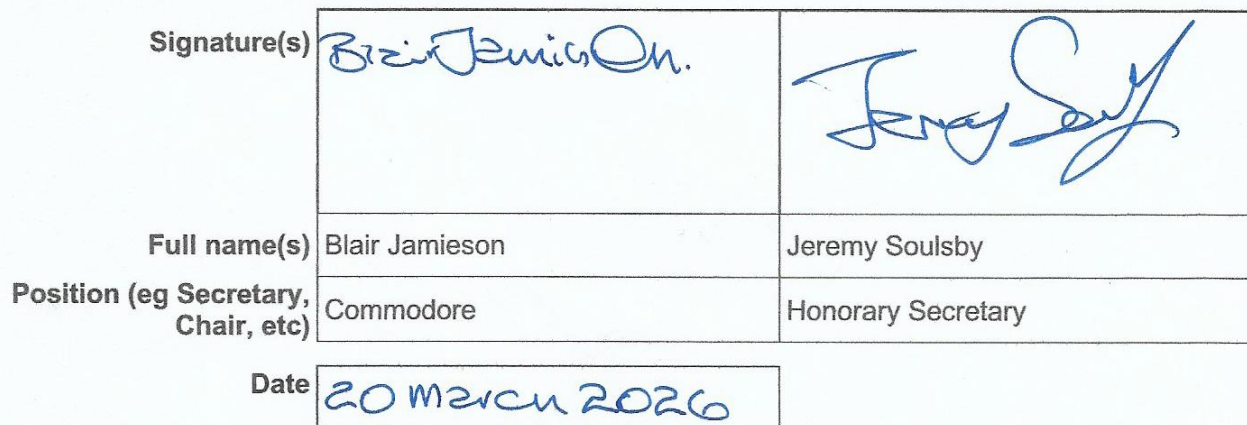 Signature(s) Blair Jamieson. Jeremy Soulsby
Full name(s) Blair Jamieson Jeremy Soulsby
Position (eg Secretary, Commodore Honorary Secretary
Chair, etc)
Date 20 March 2026